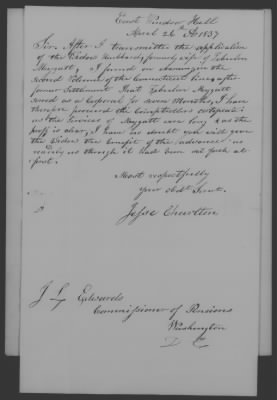 East Windsor Hill
April 26th AD 1837
Sir. After I transmitted the application
of the Widow Hubbard, formerly of Zebulon
Mygatt, I found, showing in the
second Volume of the Connecticut line after
former Settlement That Zebulon Mygatt
served as a Corporal for seven Months, I have
therefore procured the Comptrollers certificate
as the services of Mygatt are long & as the
proof is clear, I have no doubt you will give
the Widow the benefit of the advance as
readily as though it had been sent forth at
first.
Most respectfully
your obdt Servt.
Jesse Charlton
J L Edwards
Commissioner of Pensions
Washington
D C